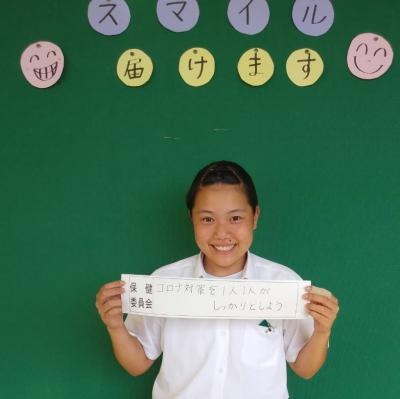 スマイル
届けます
保健 コロナ対策を1人1人が
委員会 しっかりとしよう